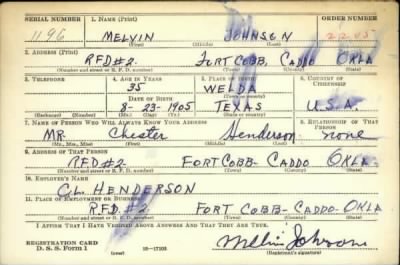 SERIAL NUMBER 1. NAME (Print) ORDER NUMBER
1196 MELVIN JOHNSON 2205
(First) (Middle) (Last)
2. ADDRESS (Print)
RFD#2. FORT COBB, CADDO OKLA
(Number and street or R. F. D. number) (Town) (County) (State)
3. TELEPHONE 4. AGE IN YEARS 5. PLACE OF BIRTH 6. COUNTRY OF CITIZENSHIP
35 WELDA
DATE OF BIRTH
8-23-1905 TEXAS U.S.A.
(Exchange) (Number) (Mo.) (Day) (Yr.) (State or country)
7. NAME OF PERSON WHO WILL ALWAYS KNOW YOUR ADDRESS 8. RELATIONSHIP OF THAT PERSON
MR. Chester Henderson none
(Mr., Mrs., Miss) (First) (Middle) (Last)
9. ADDRESS OF THAT PERSON
RFD#2 FORT COBB- CADDO OKLA.
(Number and street or R. F. D. number) (Town) (County) (State)
10. EMPLOYER'S NAME
CL. HENDERSON
11. PLACE OF EMPLOYMENT OR BUSINESS
R.F.D. #2 FORT COBB- CADDO- OKLA.
(Number and street or R. F. D. number) (Town) (County) (State)
I AFFIRM THAT I HAVE VERIFIED ABOVE ANSWERS AND THAT THEY ARE TRUE.
REGISTRATION CARD
D. S. S. Form 1 (over) Mellvin Johnson
(Registrant's signature)